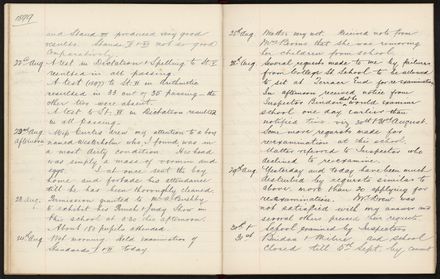 1899
and Stand III produced very good
results. Stands V + VI not so good
comparatively.
21st Aug A test in Dictation & Spelling to St. V
resulted in all passing.
A test (1897) to St. II in Arithmetic
resulted in 33 out of 35 passing — the
other two were absent.
A test to St. IV in Dictation resulted
in all passing.
22nd Aug Miss Curtis drew my attention to a boy
afternoon named who, I found was in
a most dirty condition. His head
was simply a mass of vermin and
eggs. I at once sent the boy
home and forbade his attendance
till he has been thoroughly cleaned.
Permission granted to Mr Bushby
to exhibit his Punch & Judy Show in
this school at 3.30 this afternoon.
About 150 pupils attended.
24th Aug Wet morning. Held examination of
Standards today.
25th Aug Matter very wet. Received note from
Mrs Boone that she was removing
her children from school.
28th Aug Several requests made to me by pupils
from College St School to be allowed
to sit at Terrace End for re-examination
In afternoon received notice from
Inspector Bindon that he would examine
school one day earlier than
notified viz. 30th & 31st August.
Some more requests made for
reexamination at this school.
Matter referred to Inspector who
declined to re-examine.
29th Aug Yesterday and today have been much
disturbed by requests similar to
above, more than 20 applying for
re-examination. Mr was
not satisfied with my answer and
several others pressed their requests
30th & School examined by Inspectors
31st Bindon & Milne and school
closed till 5th Sept. by